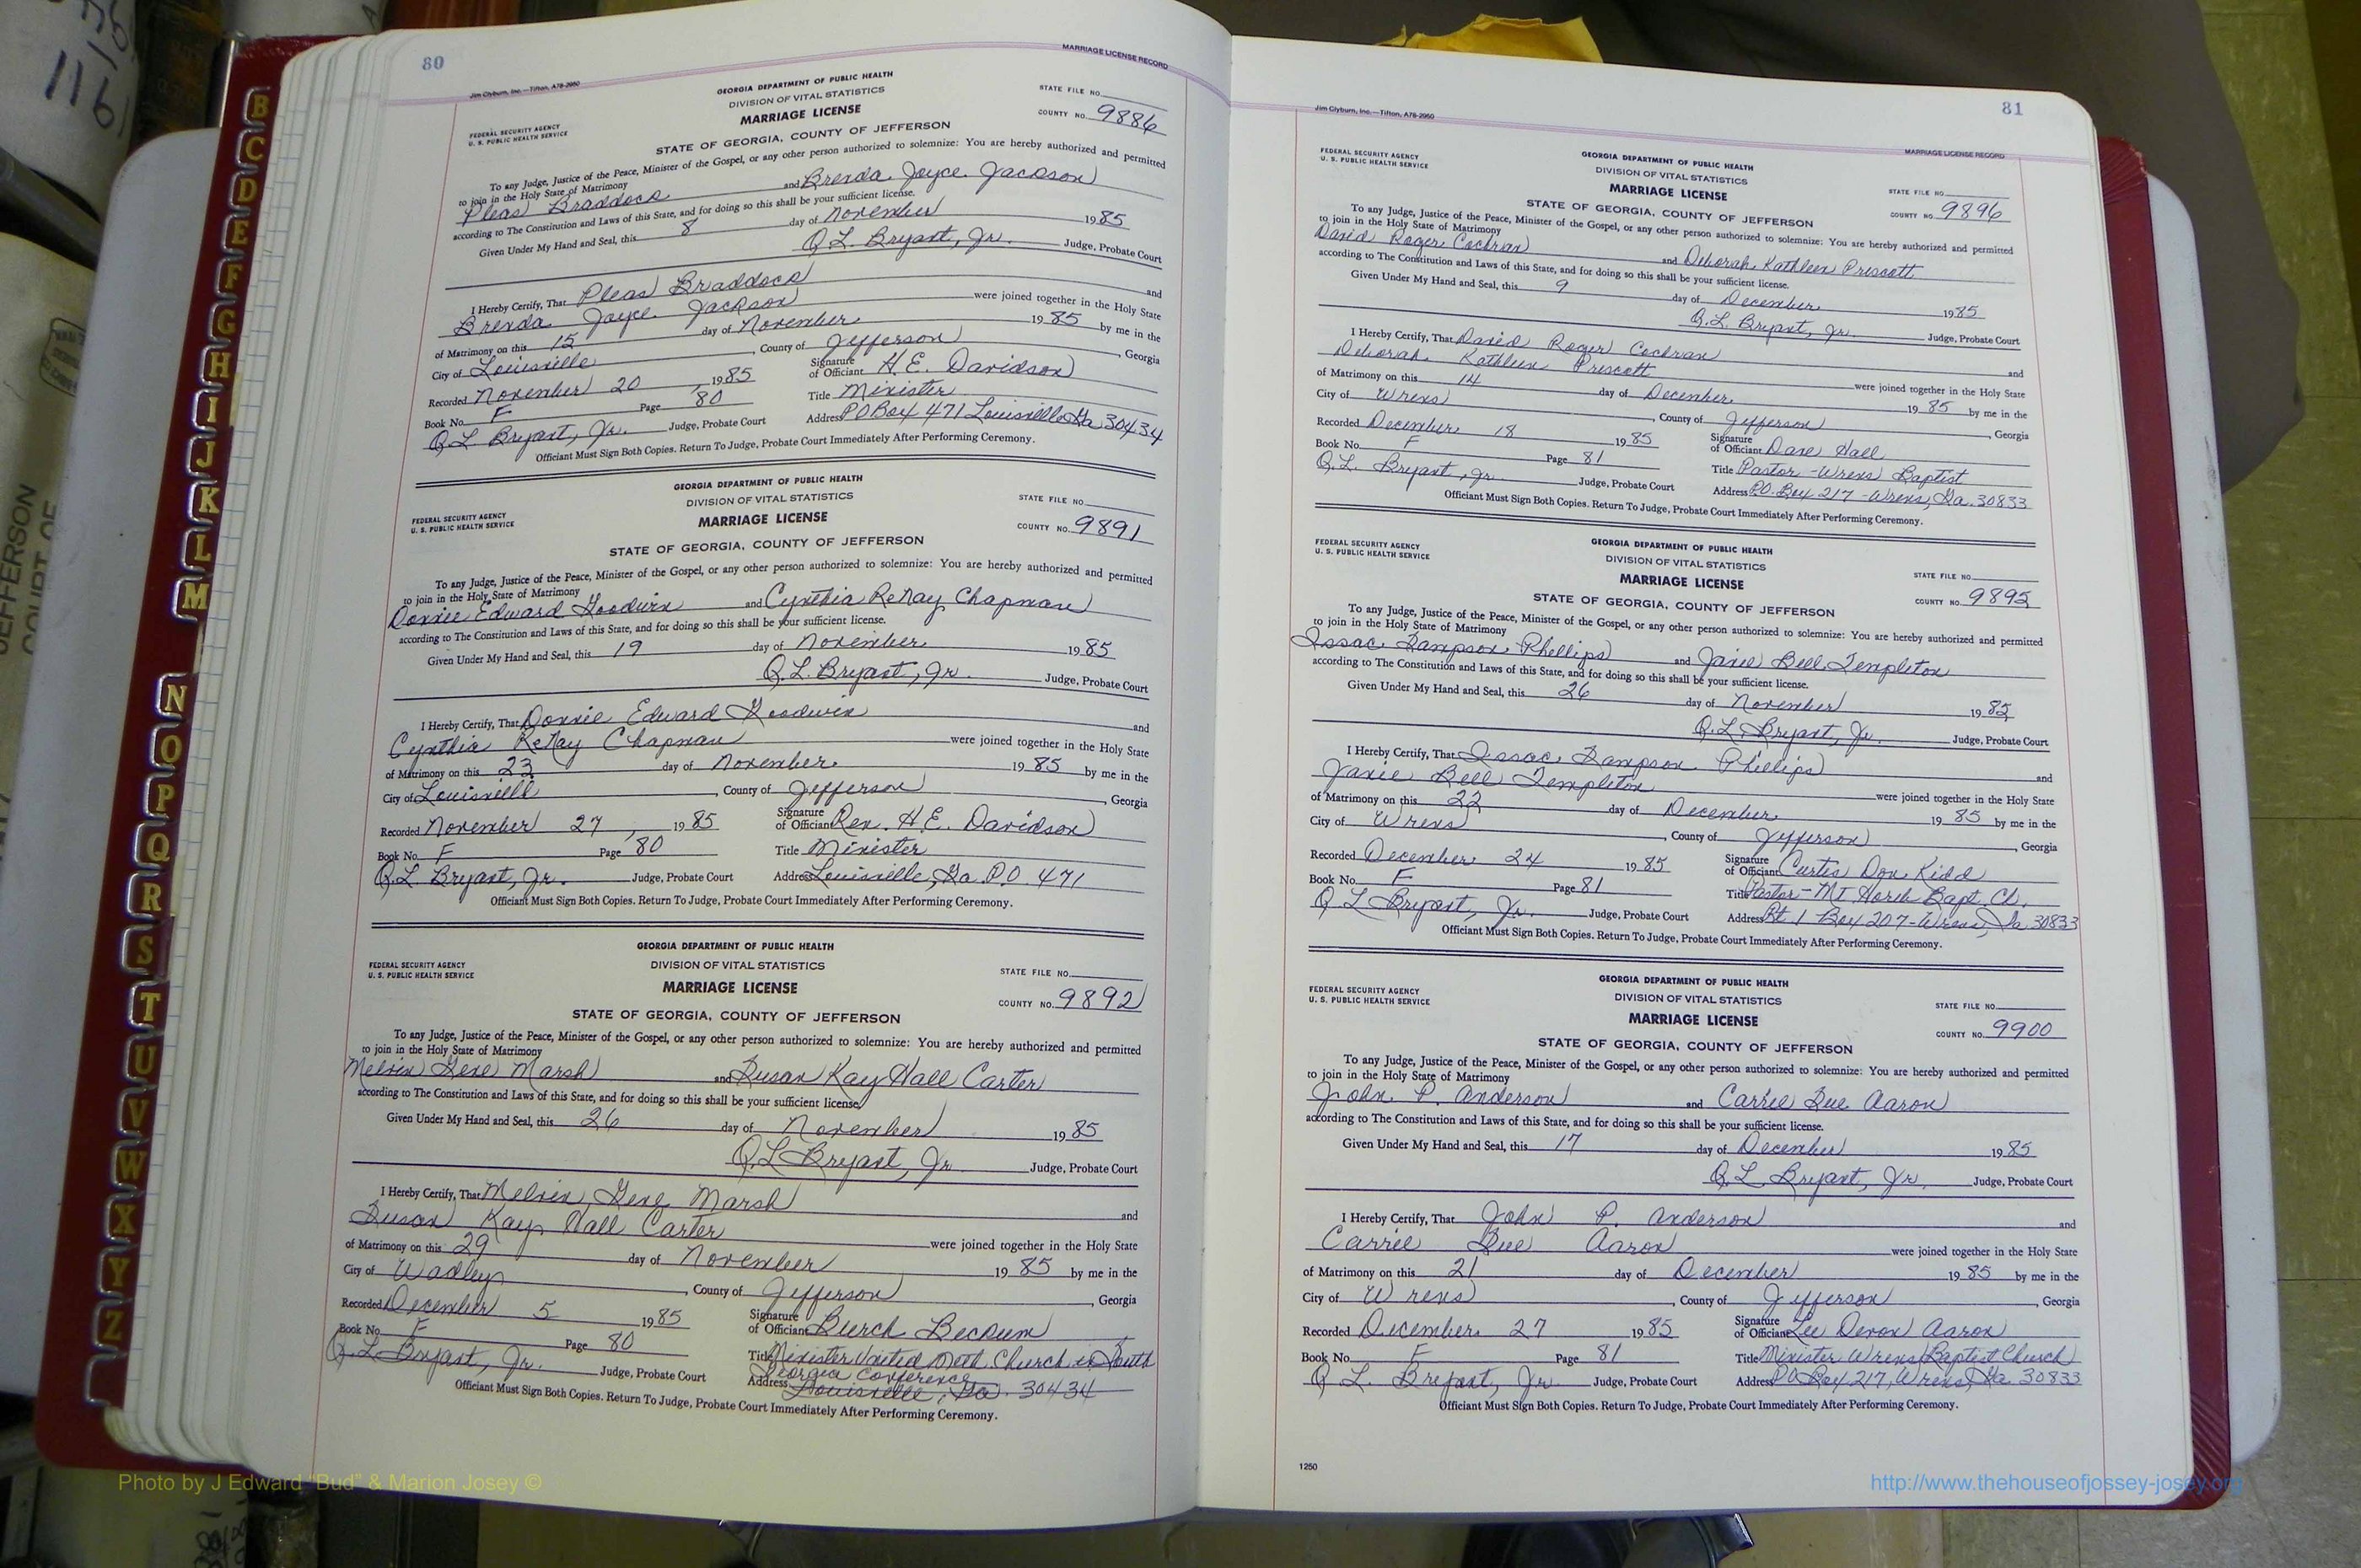 80
MARRIAGE LICENSE RECORD
Jim Clyburn, Inc.—Tifton, A78-2950
GEORGIA DEPARTMENT OF PUBLIC HEALTH
DIVISION OF VITAL STATISTICS
MARRIAGE LICENSE
STATE OF GEORGIA, COUNTY OF JEFFERSON
FEDERAL SECURITY AGENCY
U. S. PUBLIC HEALTH SERVICE
STATE FILE NO.
COUNTY NO. 9886
To any Judge, Justice of the Peace, Minister of the Gospel, or any other person authorized to solemnize: You are hereby authorized and permitted
to join in the Holy State of Matrimony
Pleas Braddock and Brenda Joyce Jackson
according to The Constitution and Laws of this State, and for doing so this shall be your sufficient license.
Given Under My Hand and Seal, this 8 day of November 1985
Q.L. Bryant, Jr. Judge, Probate Court
I Hereby Certify, That Pleas Braddock and
Brenda Joyce Jackson were joined together in the Holy State
of Matrimony on this 15 day of November 1985 by me in the
City of Louisville, County of Jefferson, Georgia
Recorded November 20, 1985 Signature of Officiant H.E. Davidson
Book No. F Page 80 Title Minister
Q.L. Bryant, Jr. Judge, Probate Court Address P O Box 471 Louisville Ga 30434
Officiant Must Sign Both Copies. Return To Judge, Probate Court Immediately After Performing Ceremony.
GEORGIA DEPARTMENT OF PUBLIC HEALTH
DIVISION OF VITAL STATISTICS
MARRIAGE LICENSE
STATE OF GEORGIA, COUNTY OF JEFFERSON
FEDERAL SECURITY AGENCY
U. S. PUBLIC HEALTH SERVICE
STATE FILE NO.
COUNTY NO. 9891
To any Judge, Justice of the Peace, Minister of the Gospel, or any other person authorized to solemnize: You are hereby authorized and permitted
to join in the Holy State of Matrimony
Donnie Edward Goodwin and Cynthia ReNay Chapman
according to The Constitution and Laws of this State, and for doing so this shall be your sufficient license.
Given Under My Hand and Seal, this 19 day of November 1985
Q.L. Bryant, Jr. Judge, Probate Court
I Hereby Certify, That Donnie Edward Goodwin and
Cynthia ReNay Chapman were joined together in the Holy State
of Matrimony on this 23 day of November 1985 by me in the
City of Louisville, County of Jefferson, Georgia
Recorded November 27, 1985 Signature of Officiant Rev. H.E. Davidson
Book No. F Page 80 Title Minister
Q.L. Bryant, Jr. Judge, Probate Court Address Louisville, Ga P.O. 471
Officiant Must Sign Both Copies. Return To Judge, Probate Court Immediately After Performing Ceremony.
GEORGIA DEPARTMENT OF PUBLIC HEALTH
DIVISION OF VITAL STATISTICS
MARRIAGE LICENSE
STATE OF GEORGIA, COUNTY OF JEFFERSON
FEDERAL SECURITY AGENCY
U. S. PUBLIC HEALTH SERVICE
STATE FILE NO.
COUNTY NO. 9892
To any Judge, Justice of the Peace, Minister of the Gospel, or any other person authorized to solemnize: You are hereby authorized and permitted
to join in the Holy State of Matrimony
Melvin Gene Marsh and Susan Kay Hall Carter
according to The Constitution and Laws of this State, and for doing so this shall be your sufficient license.
Given Under My Hand and Seal, this 26 day of November 1985
Q.L. Bryant, Jr. Judge, Probate Court
I Hereby Certify, That Melvin Gene Marsh and
Susan Kay Hall Carter were joined together in the Holy State
of Matrimony on this 29 day of November 1985 by me in the
City of Wadley, County of Jefferson, Georgia
Recorded December 5 1985 Signature of Officiant Burch Beckum
Book No. F Page 80 Title Minister United Meth. Church in South
Georgia Conference
Q.L. Bryant, Jr. Judge, Probate Court Address Louisville, Ga. 30434
Officiant Must Sign Both Copies. Return To Judge, Probate Court Immediately After Performing Ceremony.
81
Jim Clyburn, Inc.—Tifton, A78-2950
MARRIAGE LICENSE RECORD
GEORGIA DEPARTMENT OF PUBLIC HEALTH
DIVISION OF VITAL STATISTICS
MARRIAGE LICENSE
STATE OF GEORGIA, COUNTY OF JEFFERSON
FEDERAL SECURITY AGENCY
U. S. PUBLIC HEALTH SERVICE
STATE FILE NO.
COUNTY NO. 9896
To any Judge, Justice of the Peace, Minister of the Gospel, or any other person authorized to solemnize: You are hereby authorized and permitted
to join in the Holy State of Matrimony
David Roger Cochran and Deborah Kathleen Prescott
according to The Constitution and Laws of this State, and for doing so this shall be your sufficient license.
Given Under My Hand and Seal, this 9 day of December 1985
Q.L. Bryant, Jr. Judge, Probate Court
I Hereby Certify, That David Roger Cochran and
Deborah Kathleen Prescott were joined together in the Holy State
of Matrimony on this 14 day of December 1985 by me in the
City of Wrens, County of Jefferson, Georgia
Recorded December 18 1985 Signature of Officiant Dave Hall
Book No. F Page 81 Title Pastor - Wrens Baptist
Q.L. Bryant, Jr. Judge, Probate Court Address P.O. Box 217 - Wrens, Ga. 30833
Officiant Must Sign Both Copies. Return To Judge, Probate Court Immediately After Performing Ceremony.
GEORGIA DEPARTMENT OF PUBLIC HEALTH
DIVISION OF VITAL STATISTICS
MARRIAGE LICENSE
STATE OF GEORGIA, COUNTY OF JEFFERSON
FEDERAL SECURITY AGENCY
U. S. PUBLIC HEALTH SERVICE
STATE FILE NO.
COUNTY NO. 9895
To any Judge, Justice of the Peace, Minister of the Gospel, or any other person authorized to solemnize: You are hereby authorized and permitted
to join in the Holy State of Matrimony
Issac Sampson Phellips and Janie Bell Templeton
according to The Constitution and Laws of this State, and for doing so this shall be your sufficient license.
Given Under My Hand and Seal, this 26 day of November 1985
Q.L. Bryant, Jr. Judge, Probate Court
I Hereby Certify, That Issac Sampson Phellips and
Janie Bell Templeton were joined together in the Holy State
of Matrimony on this 22 day of December 1985 by me in the
City of Wrens, County of Jefferson, Georgia
Recorded December 24 1985 Signature of Officiant Curtis Don Kidd
Book No. F Page 81 Title Pastor - Mt Horeb Bapt. Ch.
Q L Bryant, Jr. Judge, Probate Court Address Rt. 1 Box 207 - Wrens, Ga 30833
Officiant Must Sign Both Copies. Return To Judge, Probate Court Immediately After Performing Ceremony.
GEORGIA DEPARTMENT OF PUBLIC HEALTH
DIVISION OF VITAL STATISTICS
MARRIAGE LICENSE
STATE OF GEORGIA, COUNTY OF JEFFERSON
FEDERAL SECURITY AGENCY
U. S. PUBLIC HEALTH SERVICE
STATE FILE NO.
COUNTY NO. 9900
To any Judge, Justice of the Peace, Minister of the Gospel, or any other person authorized to solemnize: You are hereby authorized and permitted
to join in the Holy State of Matrimony
John P. Anderson and Carrie Sue Aaron
according to The Constitution and Laws of this State, and for doing so this shall be your sufficient license.
Given Under My Hand and Seal, this 17 day of December 1985
Q.L. Bryant, Jr. Judge, Probate Court
I Hereby Certify, That John P. Anderson and
Carrie Sue Aaron were joined together in the Holy State
of Matrimony on this 21 day of December 1985 by me in the
City of Wrens, County of Jefferson, Georgia
Recorded December 27 1985 Signature of Officiant Lee Devon Aaron
Book No. F Page 81 Title Minister Wrens Baptist Church
Q L. Bryant, Jr. Judge, Probate Court Address P O Box 217, Wrens, Ga 30833
Officiant Must Sign Both Copies. Return To Judge, Probate Court Immediately After Performing Ceremony.
1250
B
C
D
E
F
G
H
I
J
K
L
M
N
O
P
Q
R
S
T
U
V
W
X
Y
Z
JEFFERSON
COURT OF
Photo by J Edward "Bud" & Marion Josey ©
http://www.thehouseofjossey-josey.org